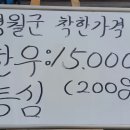 영월군 착한가격
한우:15.000
등심 (200g